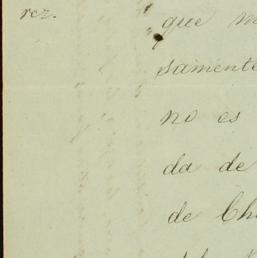 rez.
que m
samente
no es
da de
de Ch